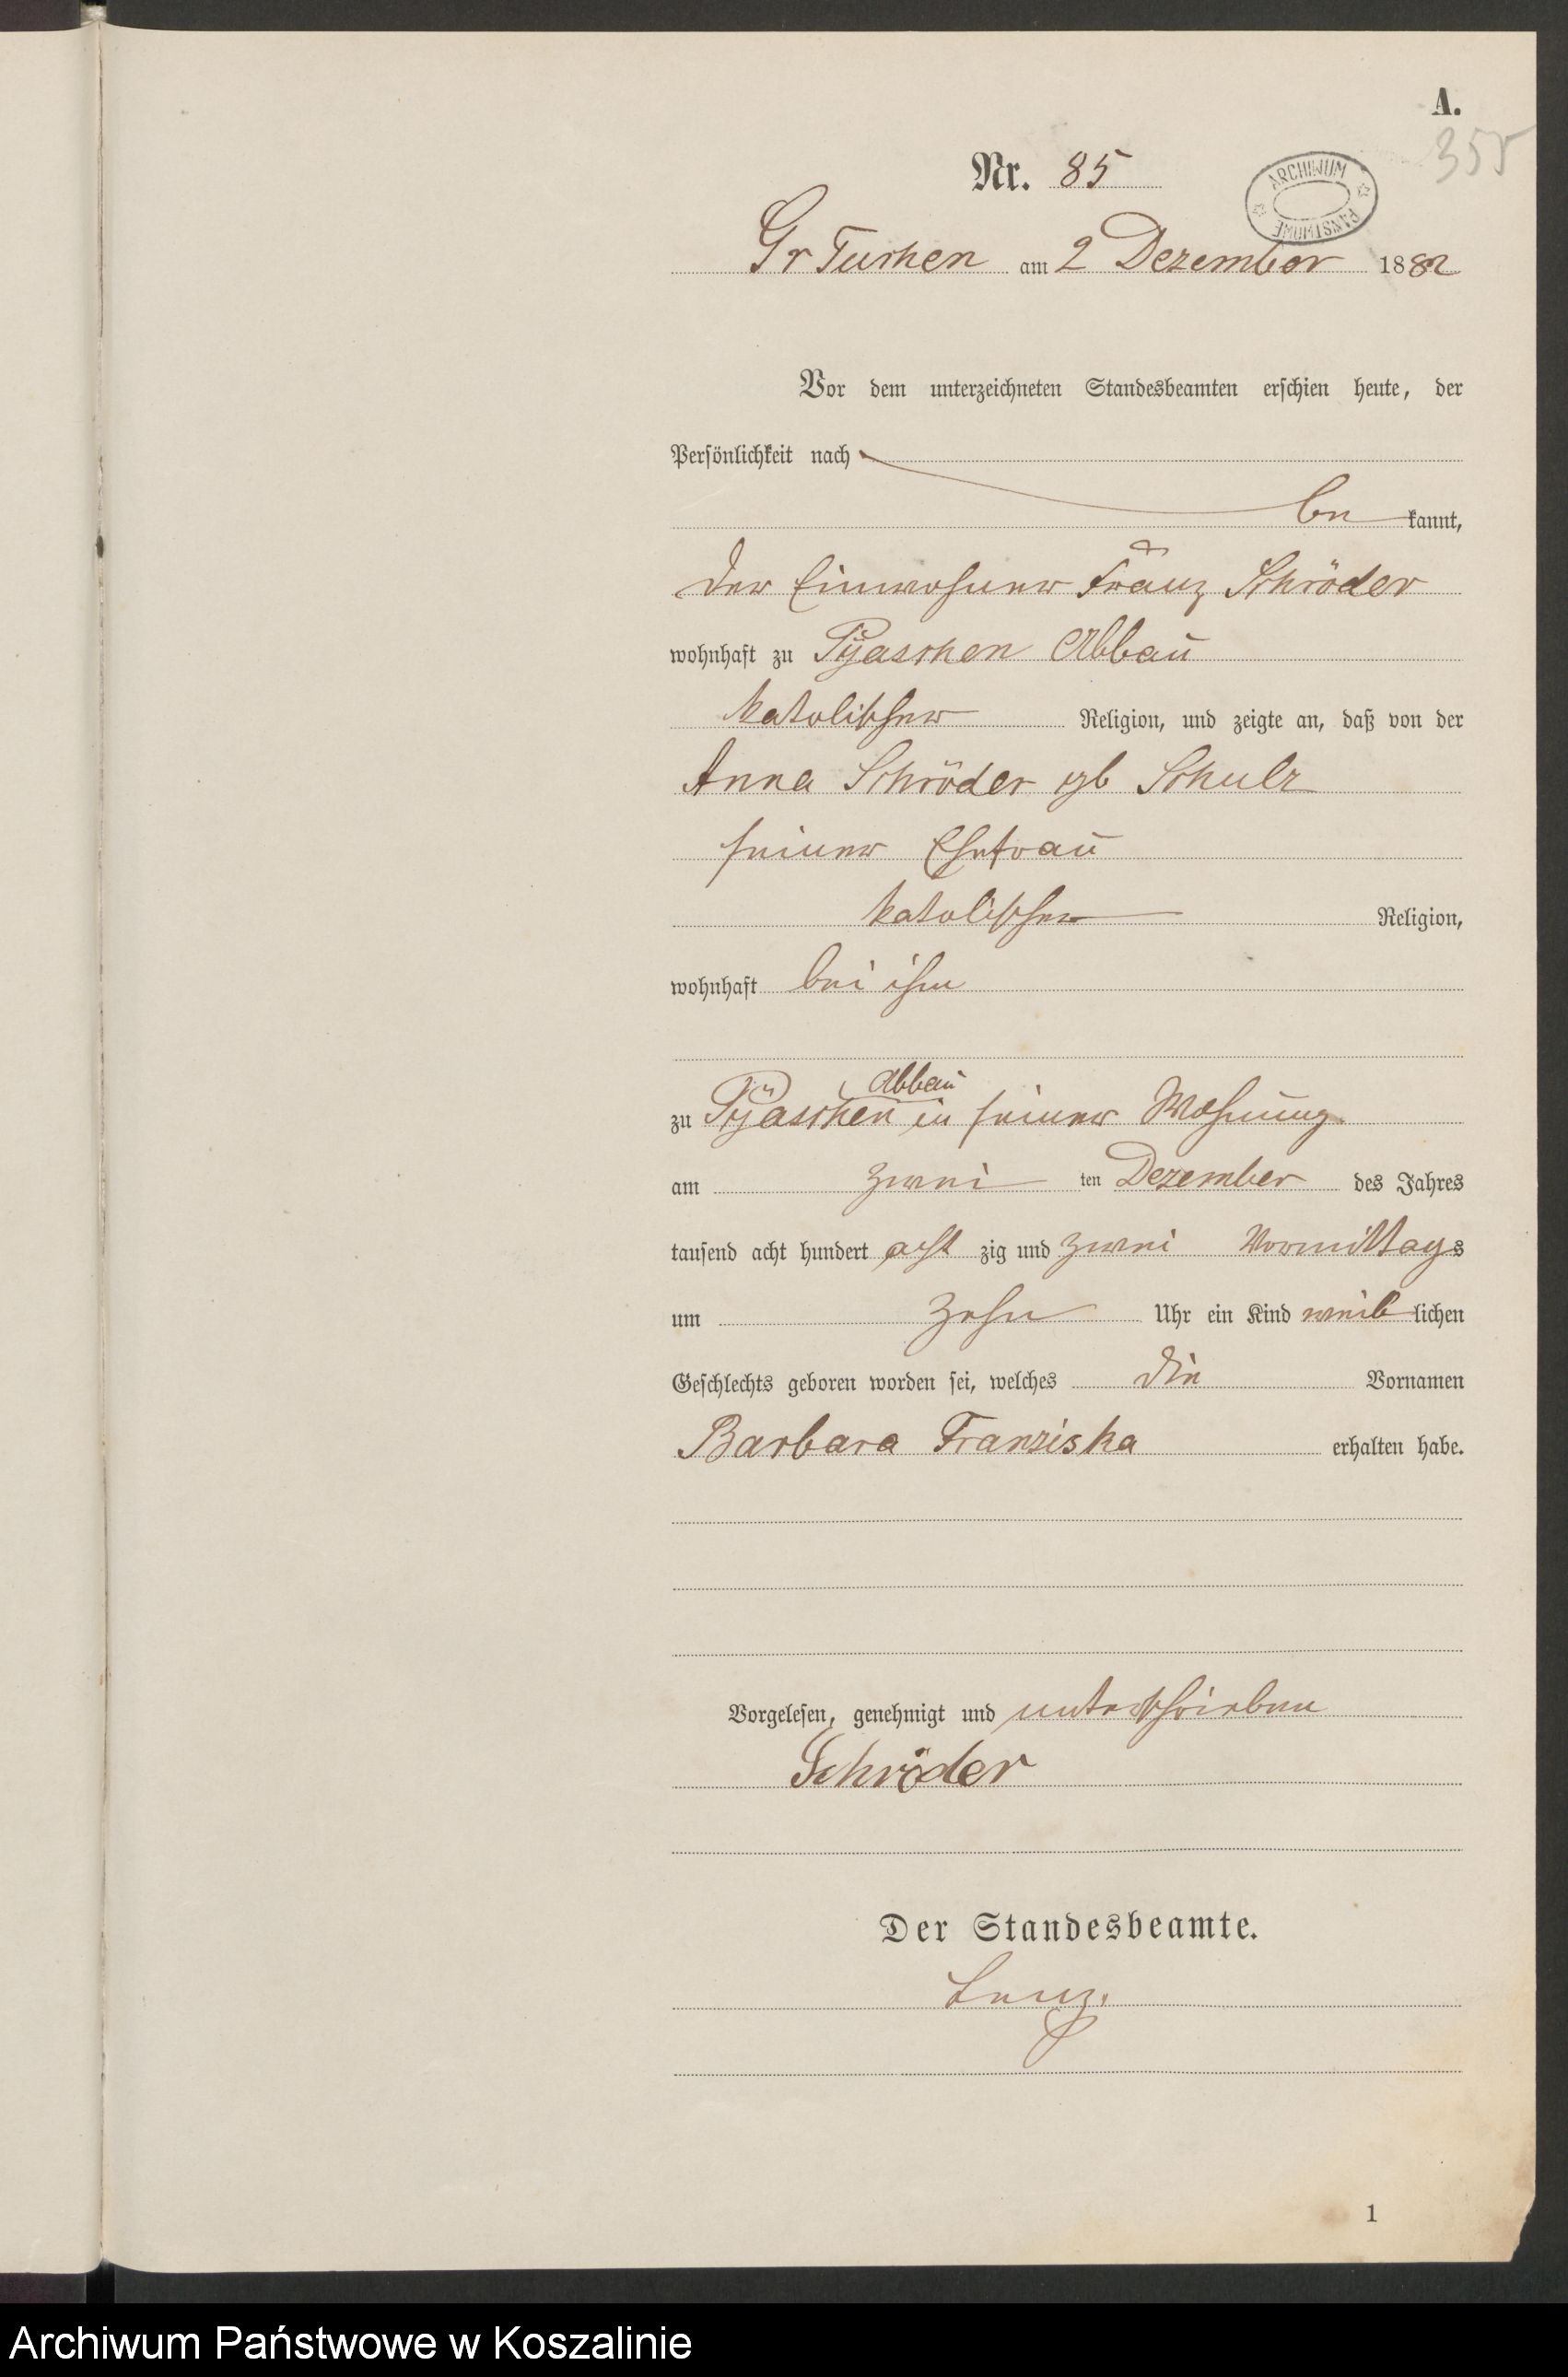 A.
355
Nr. 85
ARCHIWUM PAŃSTWOWE
Gr Tuchen am 2 Dezember 1882
Vor dem unterzeichneten Standesbeamten erschien heute, der
Persönlichkeit nach
be kannt,
der Einwohner Franz Schröder
wohnhaft zu Pyaschen Abbau
katolischer Religion, und zeigte an, daß von der
Anna Schröder gb Schulz
seiner Ehefrau
katolischer Religion,
wohnhaft bei ihm
Abbau
zu Pyaschen in seiner Wohnung
am zwei ten Dezember des Jahres
tausend acht hundert acht zig und zwei Vormittags
um zehn Uhr ein Kind weib lichen
Geschlechts geboren worden sei, welches die Vornamen
Barbara Franziska erhalten habe.
Vorgelesen, genehmigt und unterschrieben
Schröder
Der Standesbeamte.
Lenz.
1
Archiwum Państwowe w Koszalinie